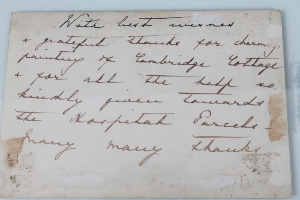 With best wishes
& grateful thanks for charming
painting of Cambridge Cottage
& for all the help so
kindly given towards
the Hospital Parcels –
Many many thanks